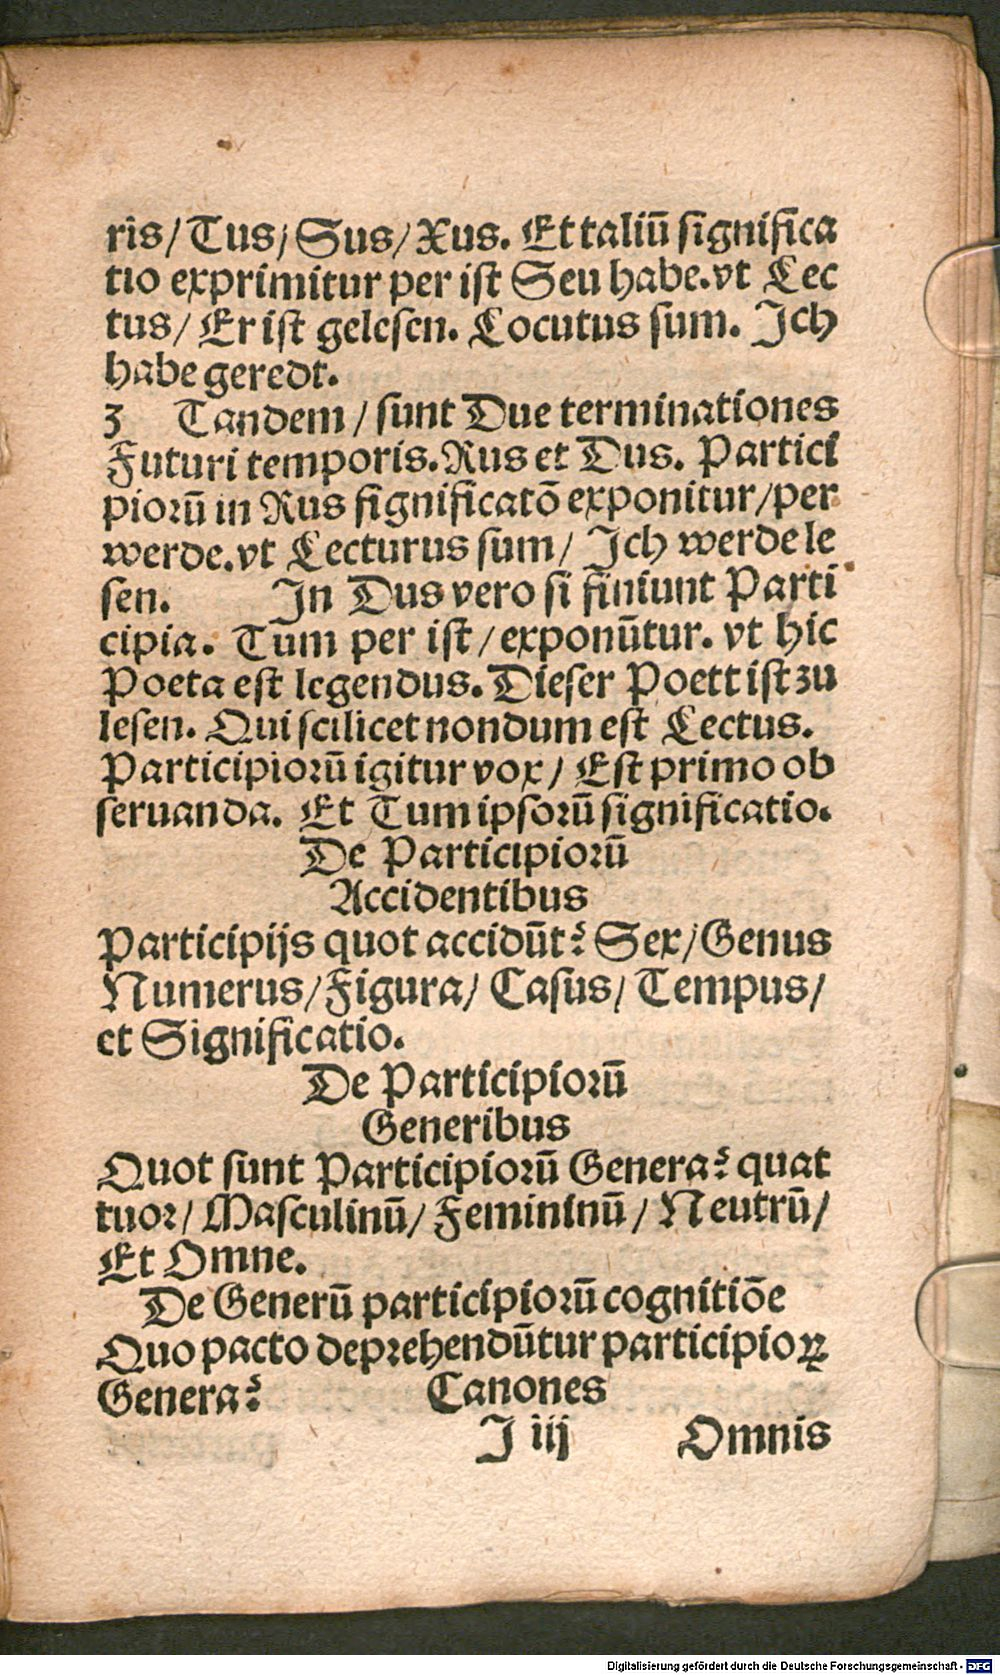 ris/ Tus/ Sus/ Xus. Et taliū significa
tio exprimitur per ist Seu habe. vt Lec
tus/ Er ist gelesen. Locutus sum. Ich
habe geredt.
3 Tandem/ sunt Due terminationes
Futuri temporis. Rus et Dus. Partici
piorū in Rus significatō exponitur/ per
werde. vt Lecturus sum/ Ich werde le
sen. In Dus vero si finiunt Parti
cipia. Tum per ist/ exponūtur. vt hic
Poeta est legendus. Dieser Poett ist zu
lesen. Qui scilicet nondum est Lectus.
Participiorū igitur vox/ Est primo ob
seruanda. Et Tum ipsorū significatio.
De Participiorū
Accidentibus
Participijs quot accidūt? Sex/ Genus
Numerus/ Figura/ Casus/ Tempus/
et Significatio.
De Participiorū
Generibus
Quot sunt Participiorū Genera? quat
tuor/ Masculinū/ Femininū/ Neutrū/
Et Omne.
De Generū participiorū cognitiōe
Quo pacto deprehendūtur participioꝝ
Genera? Canones
I iij Omnis
Digitalisierung gefördert durch die Deutsche Forschungsgemeinschaft - DFG